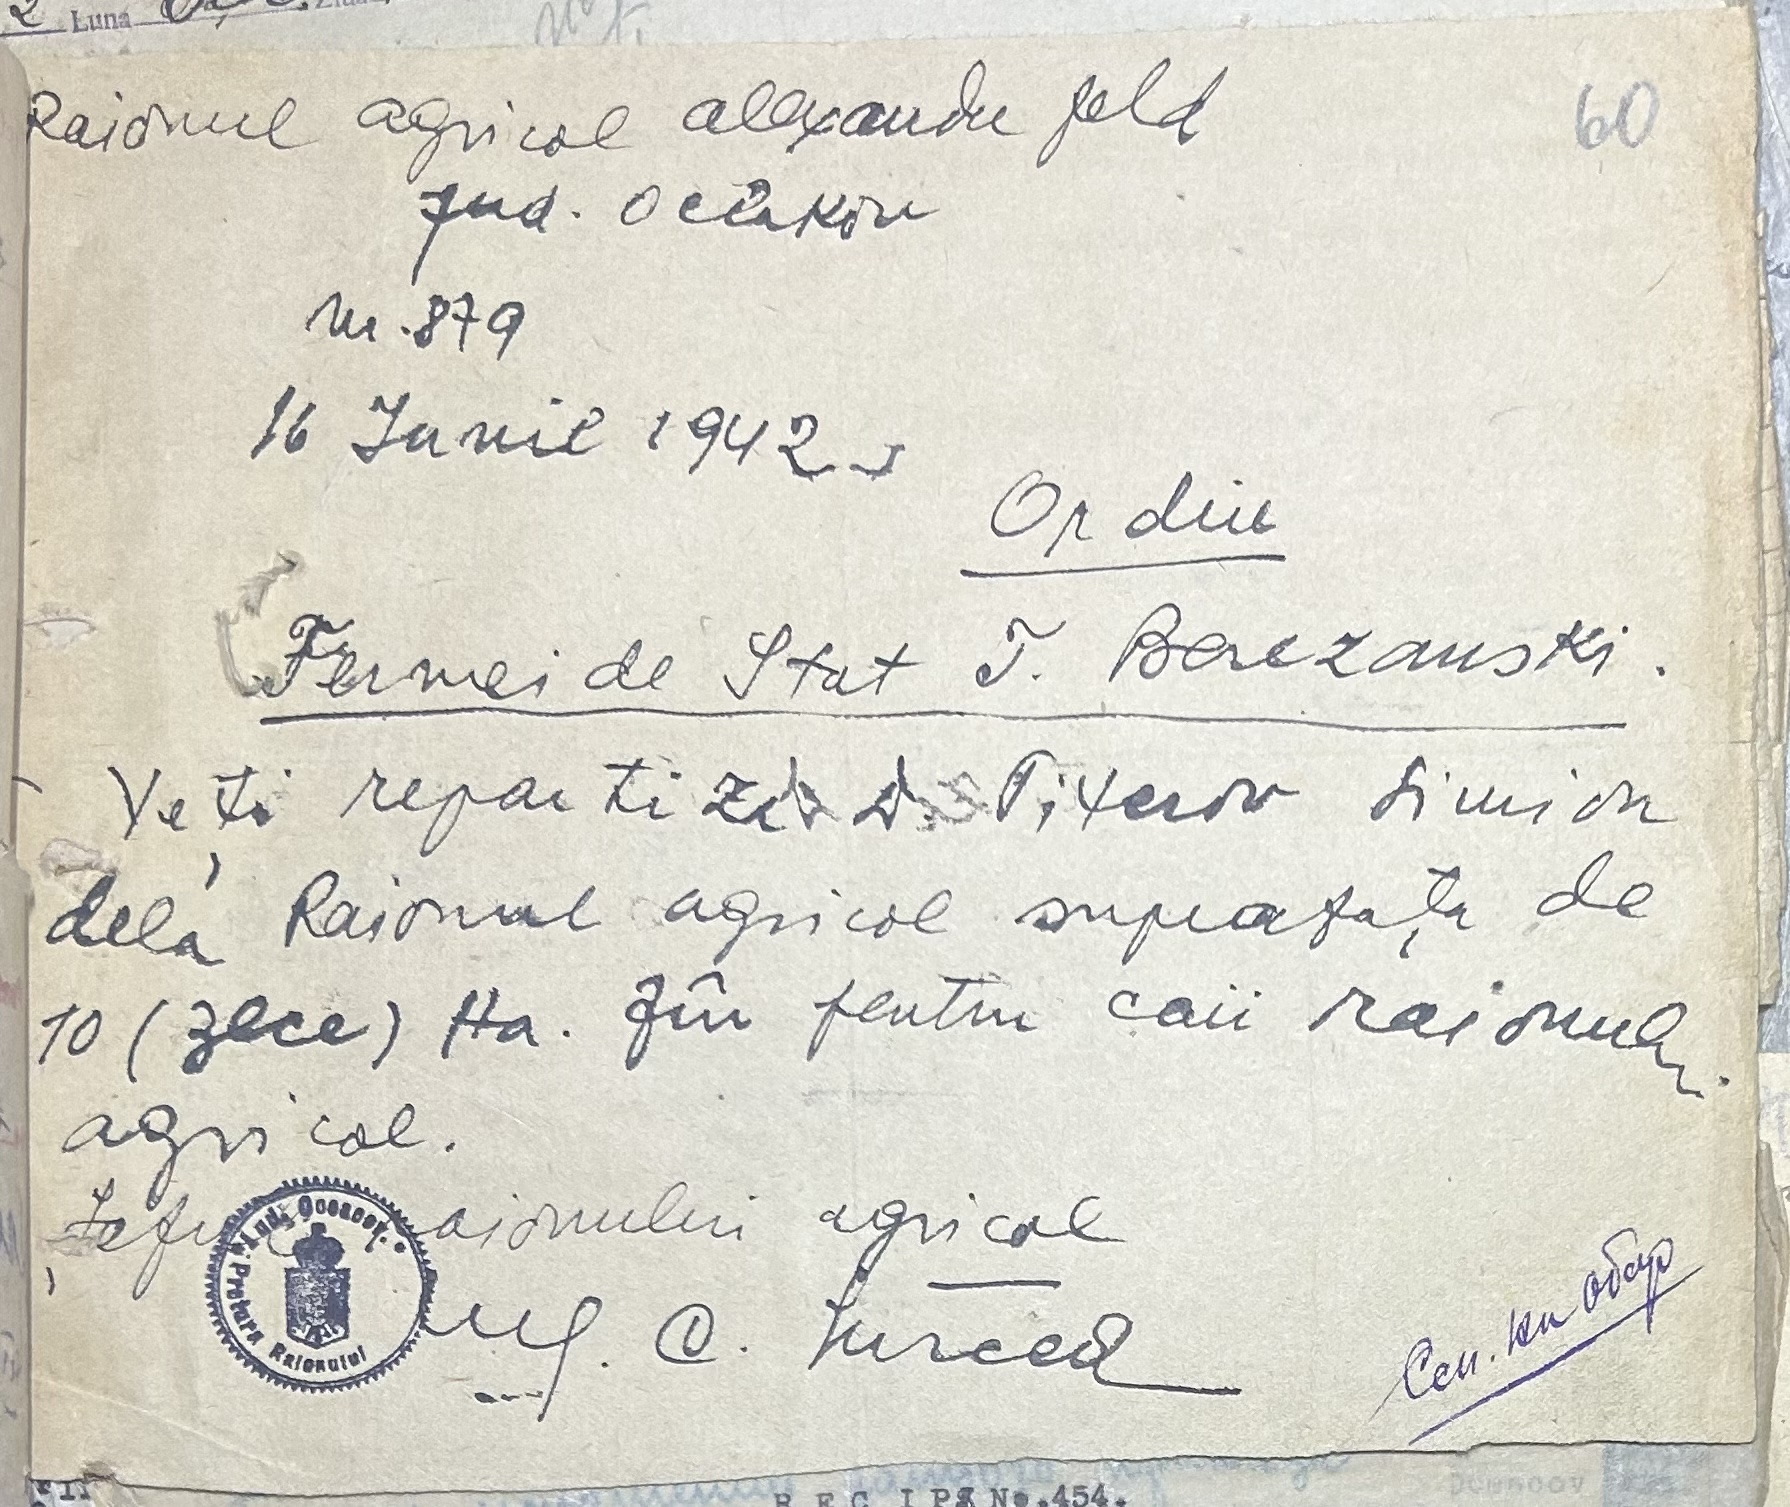 Luna
60
Raionul agricol alexandru feld
Jud. Oceakov
Nr. 879
16 Iunie 1942
Ordin
Fermei de Stat T. Berezanski.
Veți repartiza Dlui Titerov Simion
dela Raionul agricol suprafața de
10 (zece) Ha. fîn pentru caii raionului
agricol.
Șeful raionului agricol
Ing. C. Mircea
Jud. Oceacov
Pretura Raionului
Сен. на обор
R E C I P No. 454.